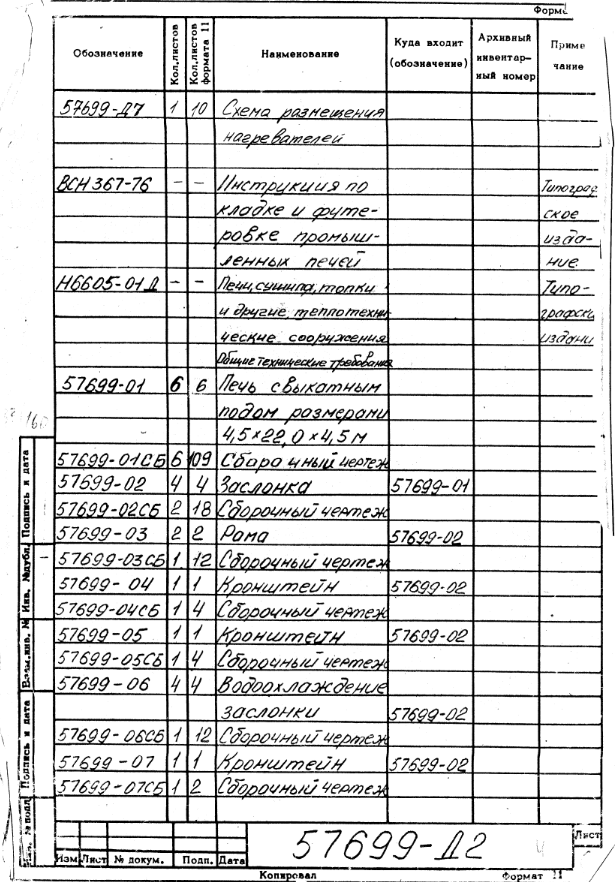 Форма
Обозначение Кол.листов Кол.листов формата 11 Наименование Куда входит (обозначение) Архивный инвентарный номер Примечание
57699-Д7 1 10 Схема размещения
нагревателей
ВСН 367-76 - - Инструкция по Типограф
кладке и футе- ское
ровке промыш- изда-
ленных печей ние
Н6605-01Д - - Печи, сушила, топки Типо-
и другие теплотехни графски
ческие сооружения издани
Общие технические требования
57699-01 6 6 Печь с выкатным
подом размерами
4,5×22,0×4,5м
57699-01СБ 6 109 Сборочный чертеж
57699-02 4 4 Заслонка 57699-01
57699-02СБ 2 18 Сборочный чертеж
57699-03 2 2 Рама 57699-02
57699-03СБ 1 12 Сборочный чертеж
57699-04 1 1 Кронштейн 57699-02
57699-04СБ 1 4 Сборочный чертеж
57699-05 1 1 Кронштейн 57699-02
57699-05СБ 1 4 Сборочный чертеж
57699-06 4 4 Водоохлаждение
заслонки 57699-02
57699-06СБ 1 12 Сборочный чертеж
57699-07 1 1 Кронштейн 57699-02
57699-07СБ 1 2 Сборочный чертеж
Инв. № подл. Подпись и дата Взам.инв. № Инв. №дубл. Подпись и дата
57699-Д2 4 Лист
Изм Лист № докум. Подп. Дата
Копировал Формат 11